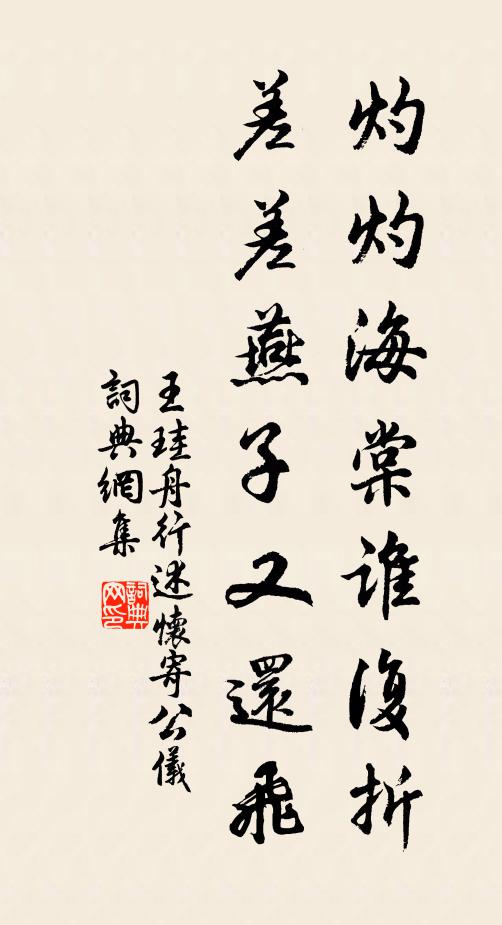 灼灼海棠誰復折
差差燕子又還飛
王珪舟行述懷寄公儀
詞典網集
詞典网印